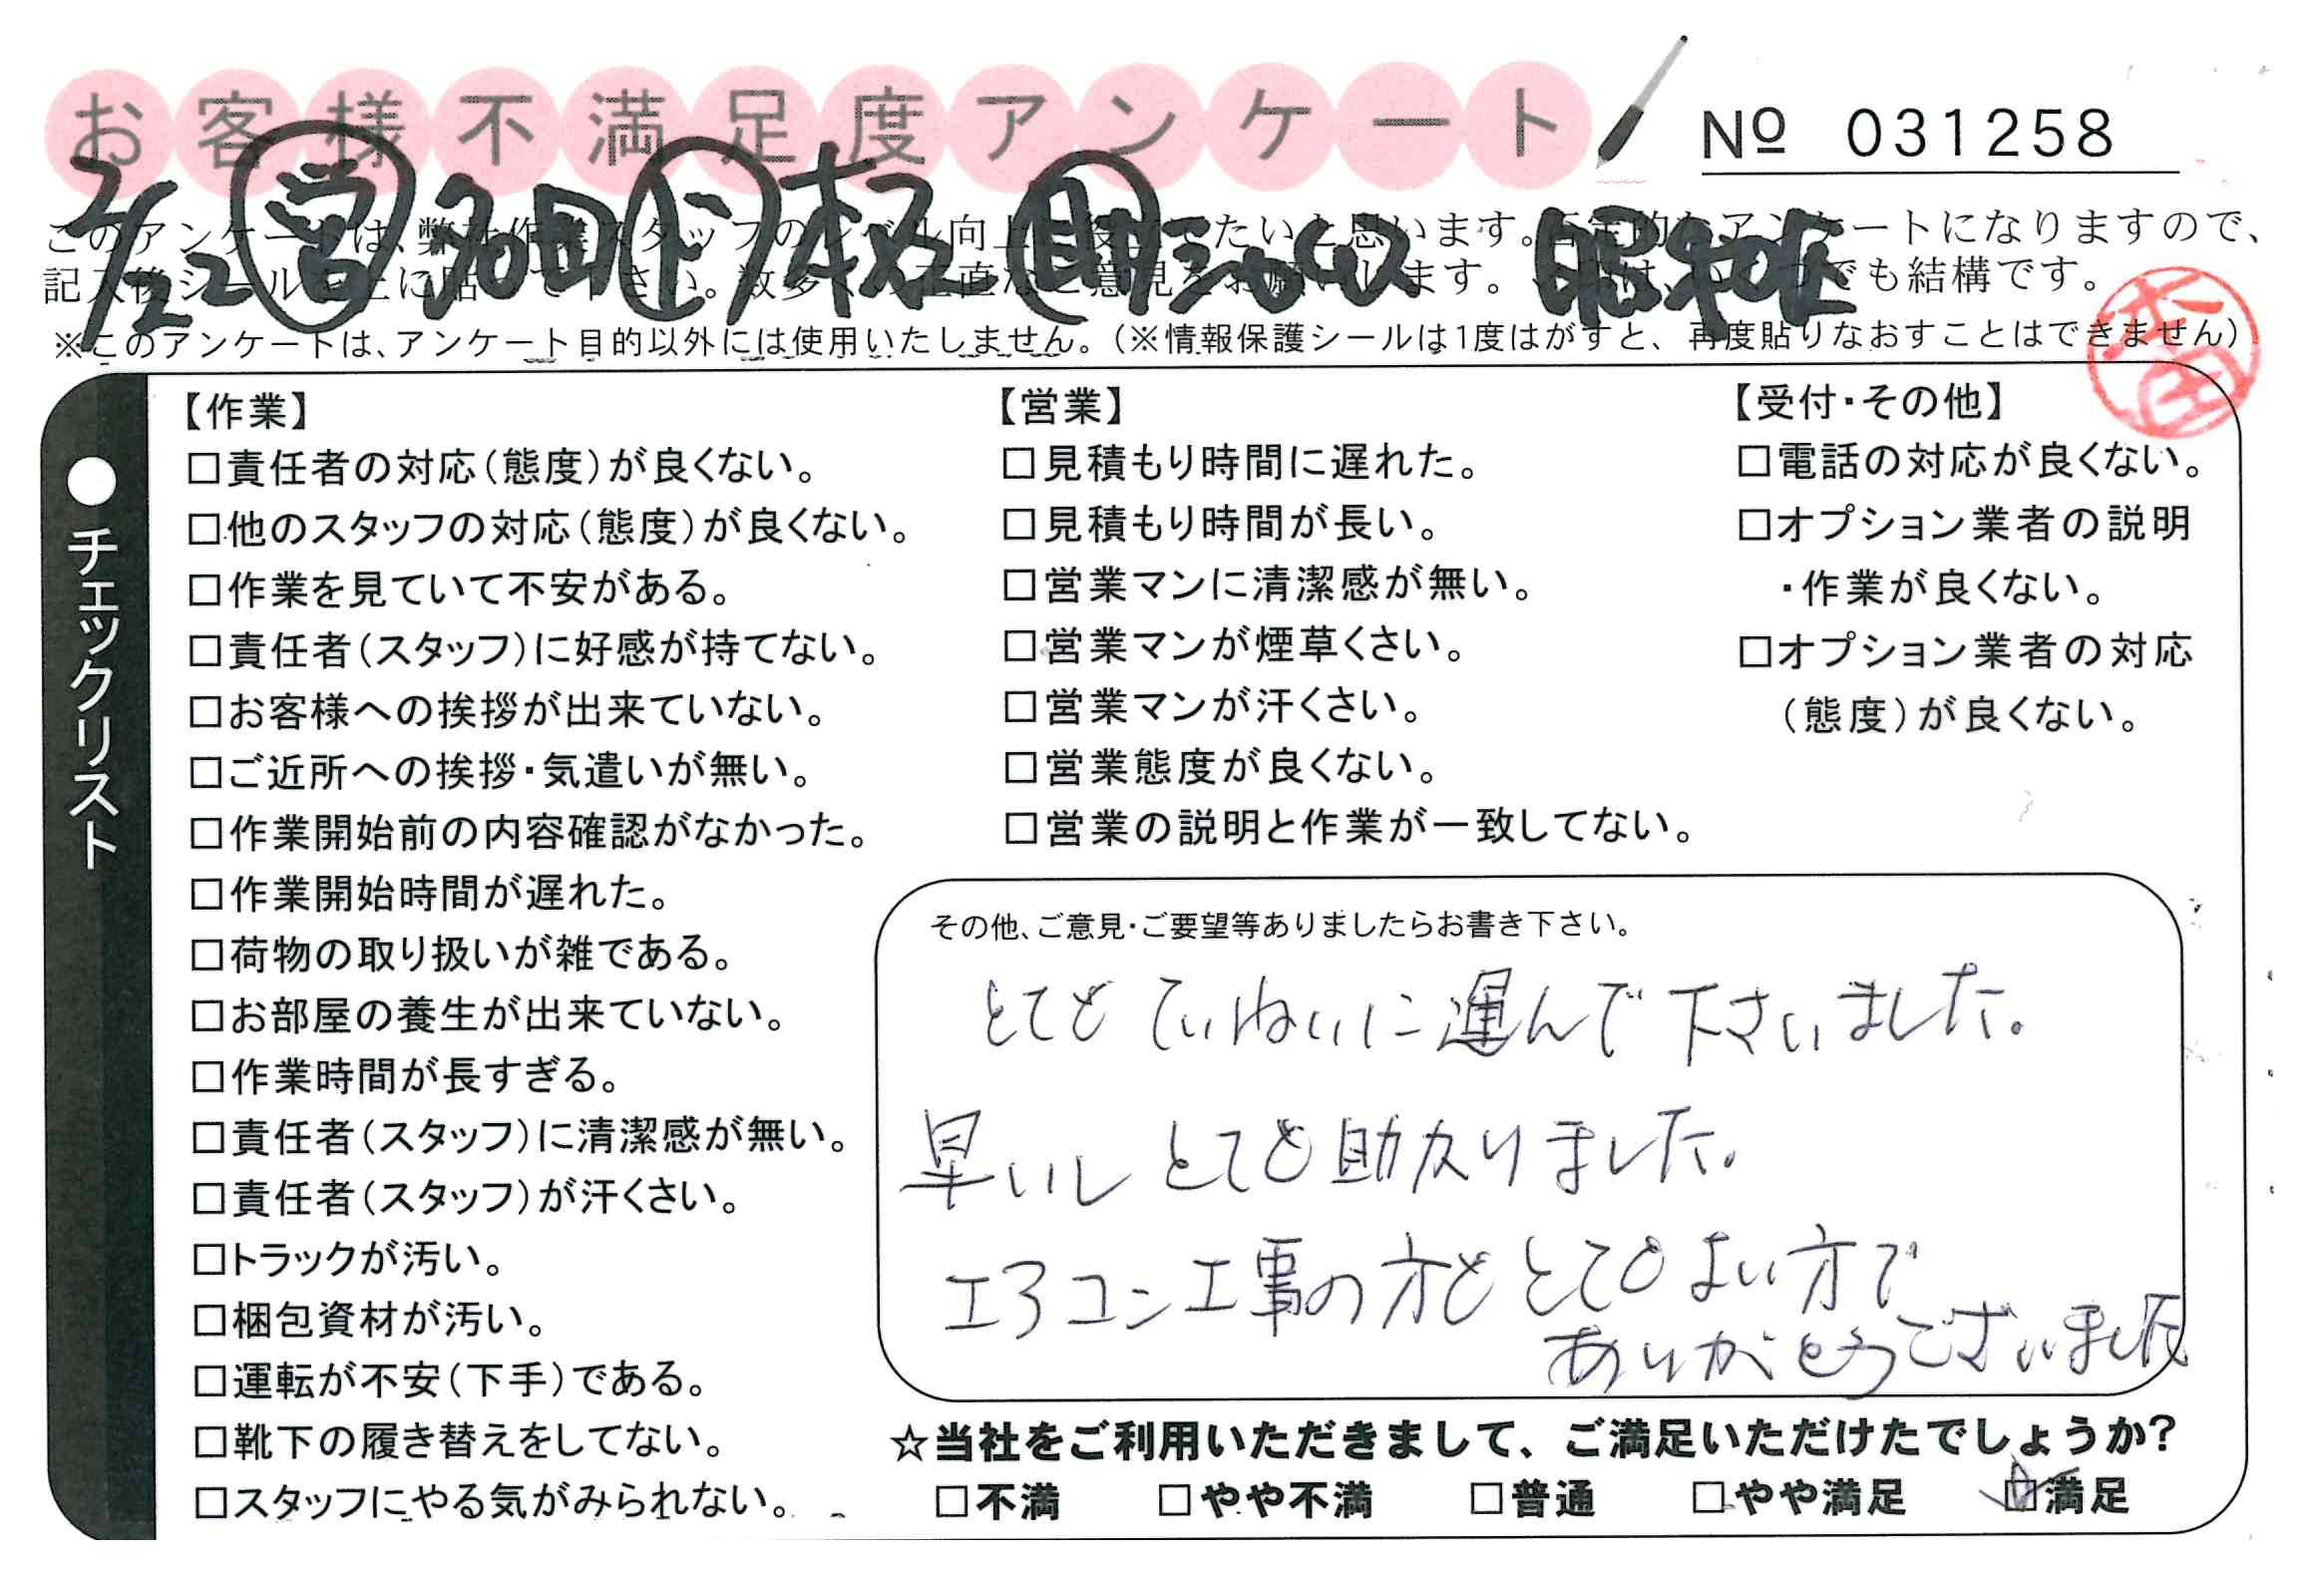 お客様不満足度アンケート
№ 031258
2/22 営 上 昭和区
このアンケートは、弊社作業スタッフのレベル向上に役立てたいと思います。否定的なアンケートになりますので、
記入後シールを上に貼って下さい。数多くの正直なご意見をお願いします。 いくつでも結構です。
※このアンケートは、アンケート目的以外には使用いたしません。(※情報保護シールは1度はがすと、再度貼りなおすことはできません)
●チェックリスト
【作業】
□責任者の対応(態度)が良くない。
□他のスタッフの対応(態度)が良くない。
□作業を見ていて不安がある。
□責任者(スタッフ)に好感が持てない。
□お客様への挨拶が出来ていない。
□ご近所への挨拶・気遣いが無い。
□作業開始前の内容確認がなかった。
□作業開始時間が遅れた。
□荷物の取り扱いが雑である。
□お部屋の養生が出来ていない。
□作業時間が長すぎる。
□責任者(スタッフ)に清潔感が無い。
□責任者(スタッフ)が汗くさい。
□トラックが汚い。
□梱包資材が汚い。
□運転が不安(下手)である。
□靴下の履き替えをしてない。
□スタッフにやる気がみられない。
【営業】
□見積もり時間に遅れた。
□見積もり時間が長い。
□営業マンに清潔感が無い。
□営業マンが煙草くさい。
□営業マンが汗くさい。
□営業態度が良くない。
□営業の説明と作業が一致してない。
【受付・その他】
□電話の対応が良くない。
□オプション業者の説明
・作業が良くない。
□オプション業者の対応
(態度)が良くない。
その他、ご意見・ご要望等ありましたらお書き下さい。
とてもていねいに運んで下さいました。
早いしとても助かりました。
エアコン工事の方もとてもよい方で
ありがとうございました
☆当社をご利用いただきまして、ご満足いただけたでしょうか?
□不満 □やや不満 □普通 □やや満足 ☑満足